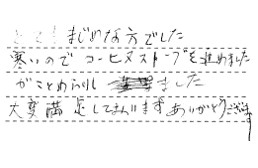 まじめな方でした
寒いので コーヒーヌストーブを進めました
がことわられました
大変満足しています ありがとうございます